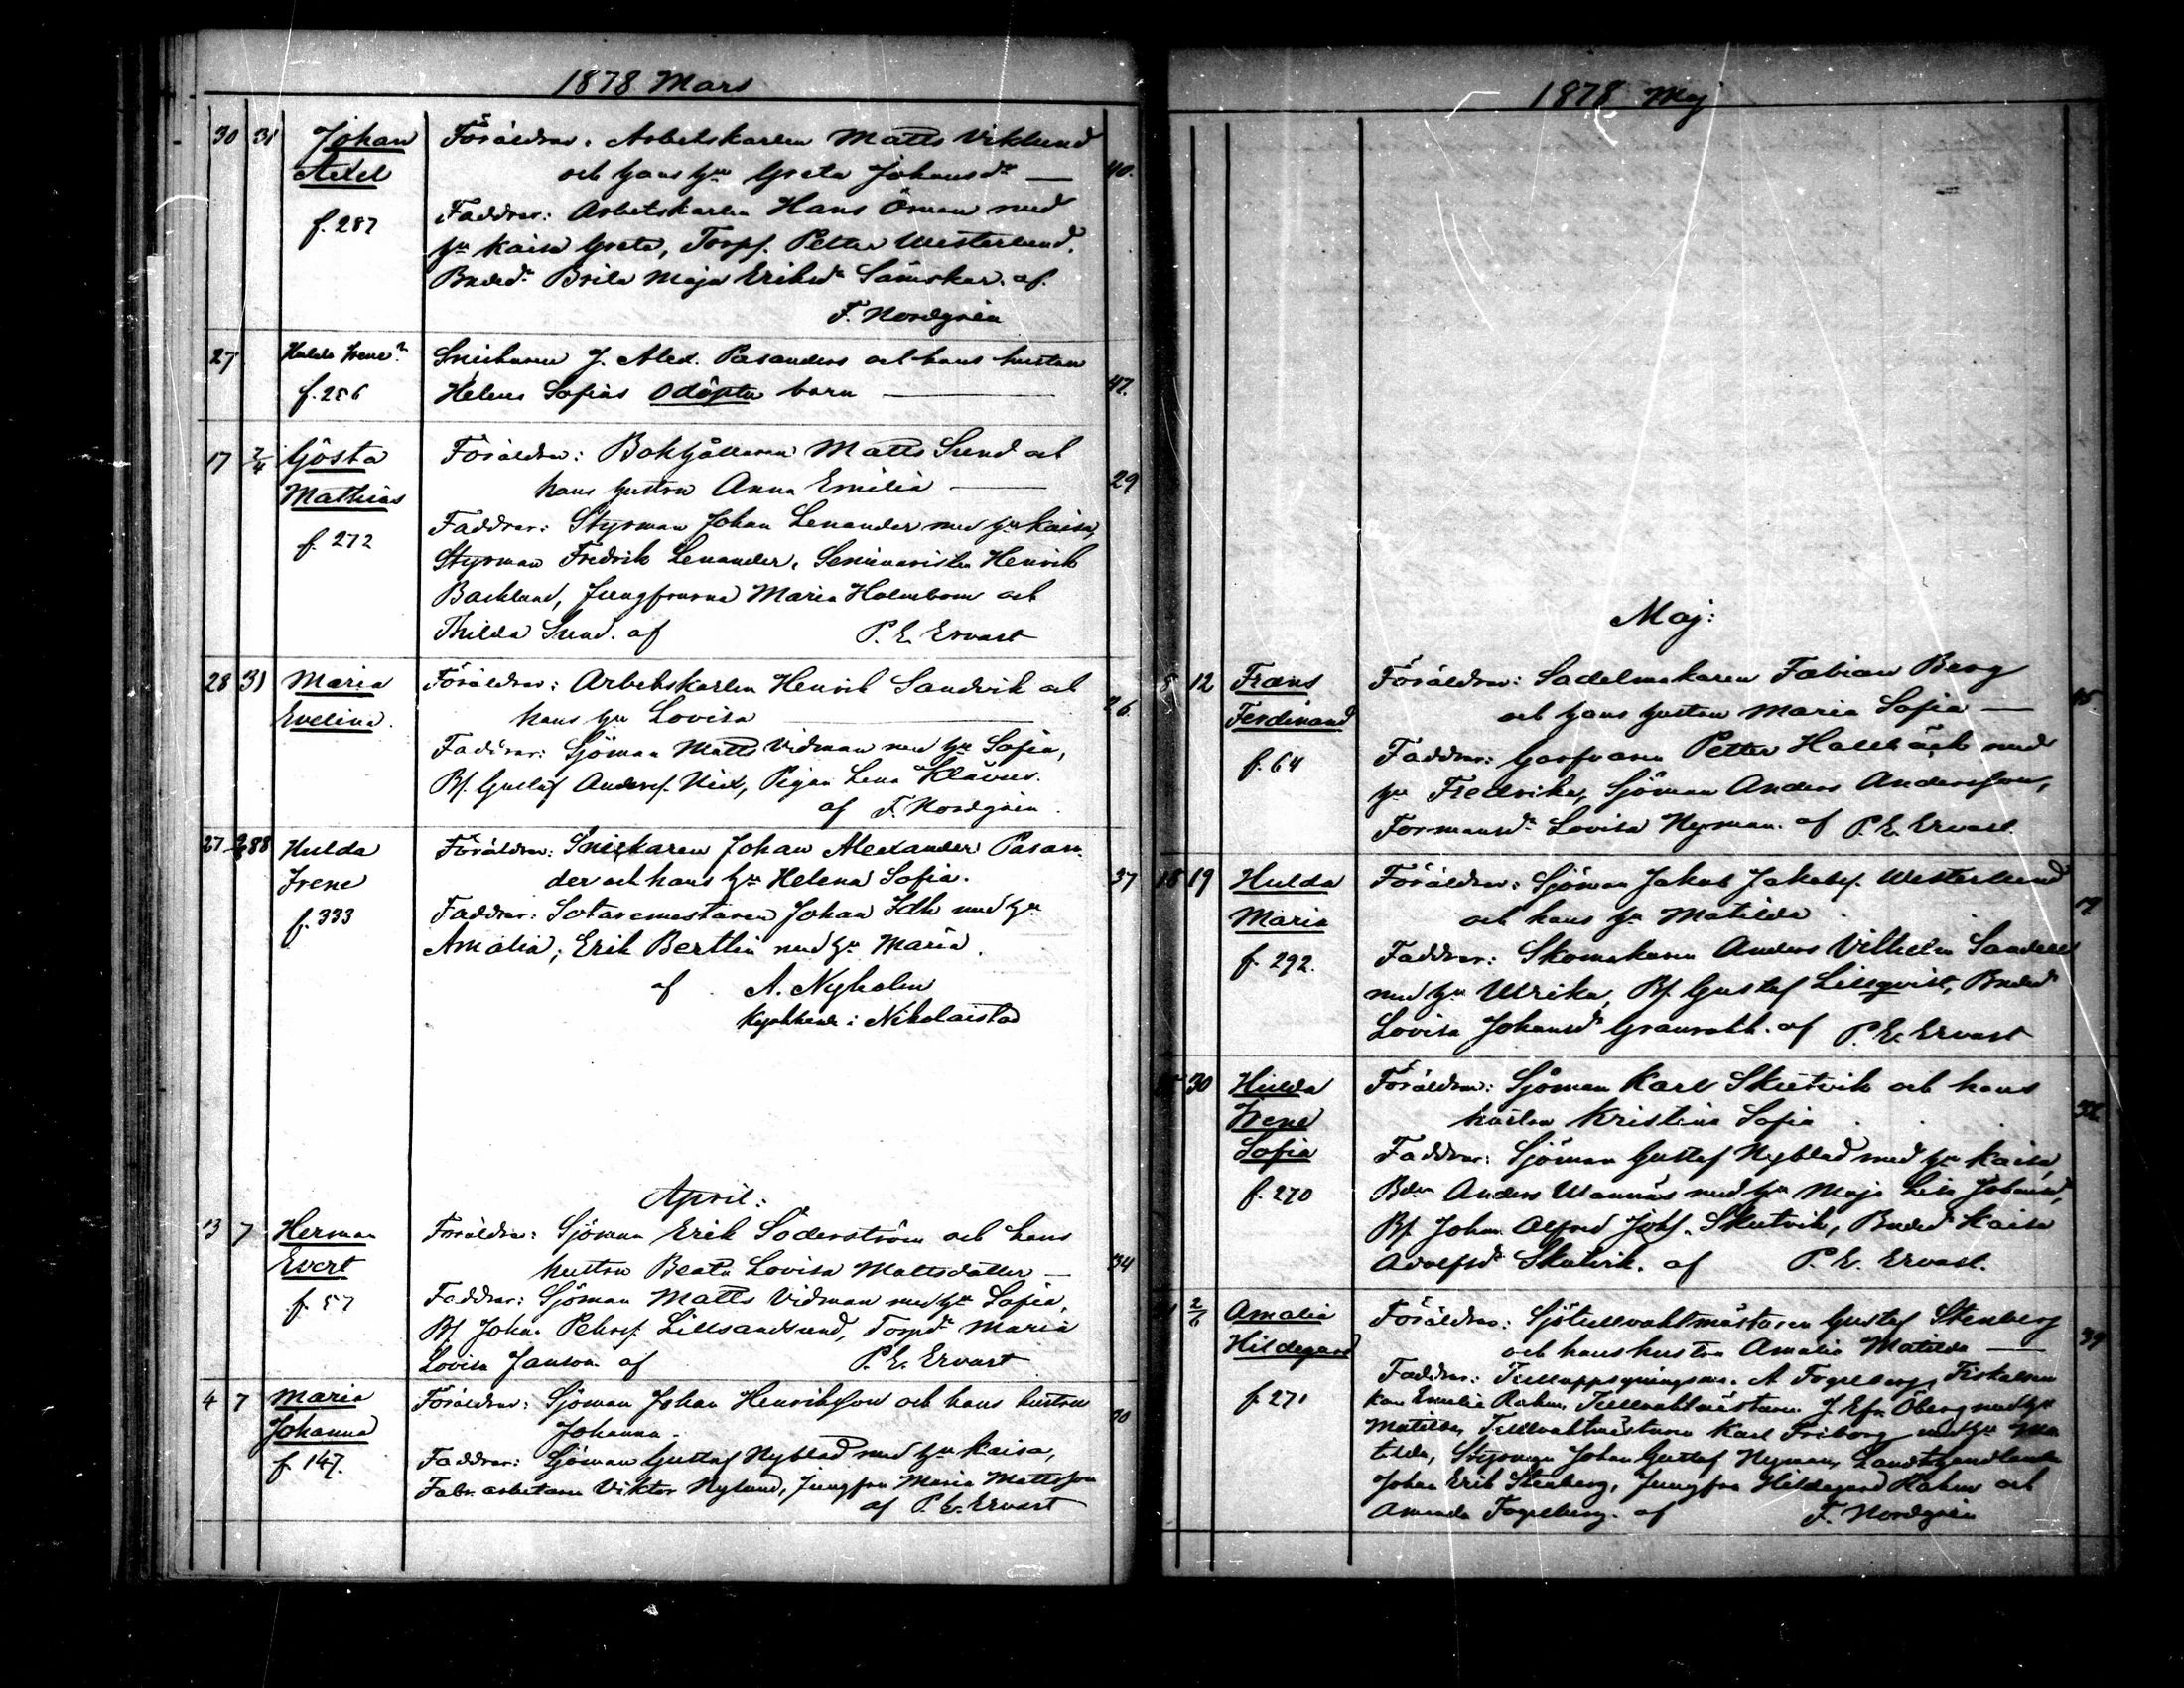 1878 Mars
30 31 Johan Föräldrar: Arbetskarlen Matts Viklund
Axel och hans hu Greta Johansdr — 40.
f. 287 Faddrar: Arbetskarlen Hans Öman med
hu Kaisa Greta, Torpf. Petter Westerlund,
Bndedr Brita Maja Eriksdr Sämskar. af
F. Nordgrén
27 Hulda Irene? Snickaren J. Alex. Pasanders och hans hustru
f. 286 Helena Sofias odöpta barn — 42.
17 2/4 Gösta Föräldrar: Bokhållaren Matts Sund och
Mathias hans hustru Anna Emilia — 29
f. 272 Faddrar: Styrman Johan Lenander med hu Kaisa,
Styrman Fredrik Lenander, Seminaristen Henrik
Backlund, Jungfrurna Maria Holmbom och
Thilda Sund. af P. E. Ervast
28 31 Maria Föräldrar: Arbetskarlen Henrik Sandvik och
Evelina. hans hu Lovisa — 26.
Faddrar: Sjöman Matts Vidman med hu Sofia,
Bf. Gustaf Andersf. Nix, Pigan Lena Klävus.
af F. Nordgrén.
27 88 Hulda Föräldrar: Snickaren Johan Alexander Pasan-
Irene der och hans hu Helena Sofia. 37
f. 333 Faddrar: Sotaremestaren Johan Idh med hu
Amalia; Erik Berthin med hu Maria.
af A. Nyholm
Kyrkherde i Nikolaistad
April:
13 7 Herman Föräldrar: Sjöman Erik Söderström och hans
Evert hustru Beata Lovisa Mattsdotter — 34
f. 57 Faddrar: Sjöman Matts Vidman med hu Sofia,
Bf. Johan Pehrsf. Lillsandsund, Torpdr Maria
Lovisa Janson. af P. E. Ervast
4 7 Maria Föräldrar: Sjöman Johan Henriksson och hans hustru
Johanna Johanna. 30
f. 147. Faddrar: Sjöman Gustaf Nyblad med hu Kaisa,
Fabr. arbetaren Viktor Nylund, Jungfru Maria Mattsson
af P. E. Ervast
1878 Maj
Maj:
8 12 Frans Föräldrar: Sadelmakaren Fabian Berg
Ferdinand och hans hustru Maria Sofia —
f. 64 Faddrar: Garfvaren Petter Hallbäck med
hu Fredrika, Sjöman Anders Andersson,
Formansdr Lovisa Nyman. af P. E. Ervast.
18 19 Hulda Föräldrar: Sjöman Jakob Jakobsf. Westerlund
Maria och hans hu Matilda.
f. 292. Faddrar: Skomakaren Anders Vilhelm Sandell
med hu Ulrika, Bf. Gustaf Lillqvist, Bndedr
Lovisa Johansdr af P. E. Ervast
30 Hulda Föräldrar: Sjöman Karl Skutvik och hans
Irene hustru Kristina Sofia.
Sofia Faddrar: Sjöman Gustaf Nyblad med hu Kaisa,
f. 270 Bden Anders Wannäs med hu Maja Lisa Johansdr,
Bf. Johan Alfred Johsf. Skutvik, Bndedr Kaisa
Adolfsdr Skutvik. af P. E. Ervast.
2/6 Amalia Föräldrar: Sjötullvaktmästaren Gustaf Stenberg
Hildegard och hans hustru Amalia Matilda — 39
f. 271 Faddrar: Tulluppsyningsm. A Fogelberg, Fiskalskan
Emelie Rahm, Tullvaktmästaren J. Efr. Öberg med hu
Matilda, Tullvaktmästaren Karl Friborg med hu Ma-
tilda, Styrman Johan Gustaf Nyman, Landthandlanden
Johan Erik Stenberg, Jungfru Hildegard Rahm och
Amanda Fogelberg. af F. Nordgrén